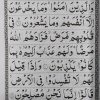 الَّذِينَ اٰمَنُوْا وَمَا يَخْدَعُوْنَ
اِلَّا اَنْفُسَهُمْ وَمَا يَشْعُرُوْنَ فِيْ
قُلُوْبِهِمْ مَّرَضٌ فَزَادَهُمُ اللّٰهُ
مَرَضًا وَلَهُمْ عَذَابٌ اَلِيْمٌ بِمَا
كَانُوْا يَكْذِبُوْنَ وَاِذَا قِيْلَ
لَهُمْ لَا تُفْسِدُوْا فِي الْاَرْضِ
قَالُوْا اِنَّمَا نَحْنُ مُصْلِحُوْنَ